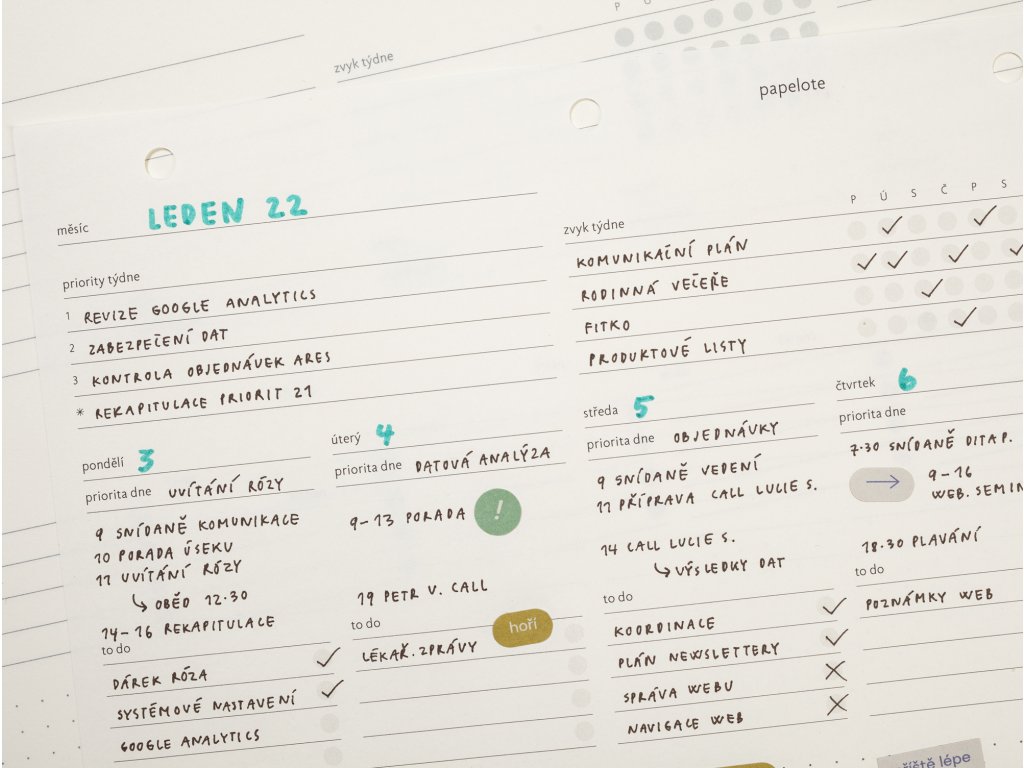 P
zvyk týdne
papelote
měsíc LEDEN 22
priority týdne
1 REVIZE GOOGLE ANALYTICS
2 ZABEZPEČENÍ DAT
3 KONTROLA OBJEDNÁVEK ARES
* REKAPITULACE PRIORIT 21
zvyk týdne P Ú S Č P S
KOMUNIKAČNÍ PLÁN
RODINNÁ VEČEŘE
FITKO
PRODUKTOVÉ LISTY
pondělí 3
priorita dne UVÍTÁNÍ RÓZY
9 SNÍDANĚ KOMUNIKACE
10 PORADA ÚSEKU
11 UVÍTÁNÍ RÓZY
OBĚD 12.30
14-16 REKAPITULACE
to do
DÁREK RÓZA
SYSTÉMOVÉ NASTAVENÍ
GOOGLE ANALYTICS
úterý 4
priorita dne DATOVÁ ANALÝZA
9-13 PORADA !
19 PETR V. CALL
to do
hoří
LÉKAŘ. ZPRÁVY
středa 5
priorita dne OBJEDNÁVKY
9 SNÍDANĚ VEDENÍ
11 PŘÍPRAVA CALL LUCIE S.
14 CALL LUCIE S.
VÝSLEDKY DAT
to do
KOORDINACE
PLÁN NEWSLETTERY
SPRÁVA WEBU
NAVIGACE WEB
čtvrtek 6
priorita dne
7.30 SNÍDANĚ DITA P.
9-16
WEB. SEMIN
18.30 PLAVÁNÍ
to do
POZNÁMKY WEB
lépe